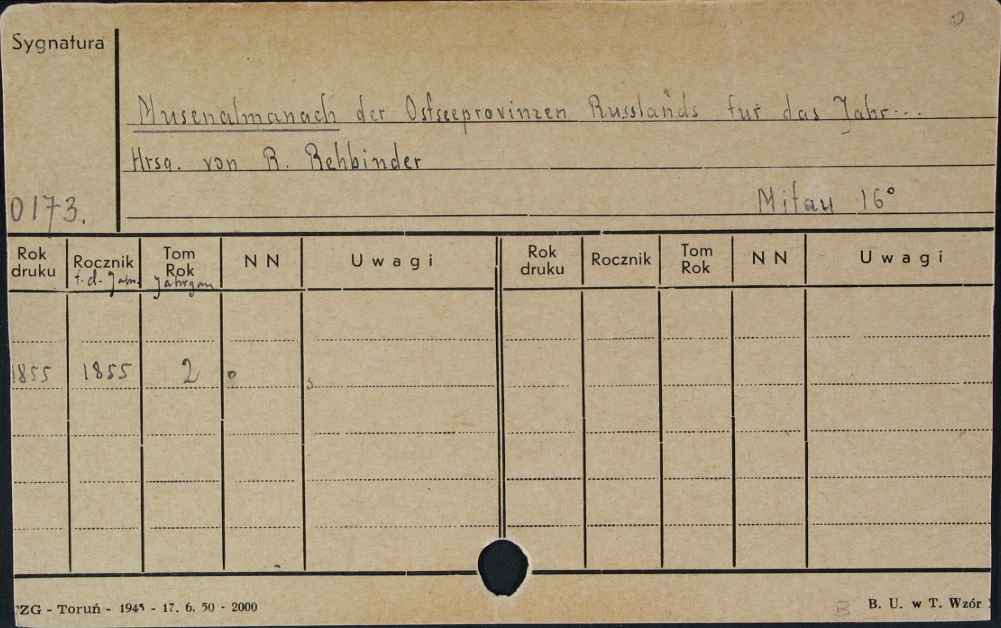 Sygnatura
Musenalmanach der Ostseeprovinzen Russlands für das Jahr...
Hrsg. von R. Rehbinder
Mitau 16°
0173.
Rok druku Rocznik f. d. Jahr Tom Rok Jahrgan NN Uwagi Rok druku Rocznik Tom Rok NN Uwagi
1855 1855 2 o
ZG - Toruń - 1945 - 17. 6. 50 - 2000
B. U. w T. Wzór